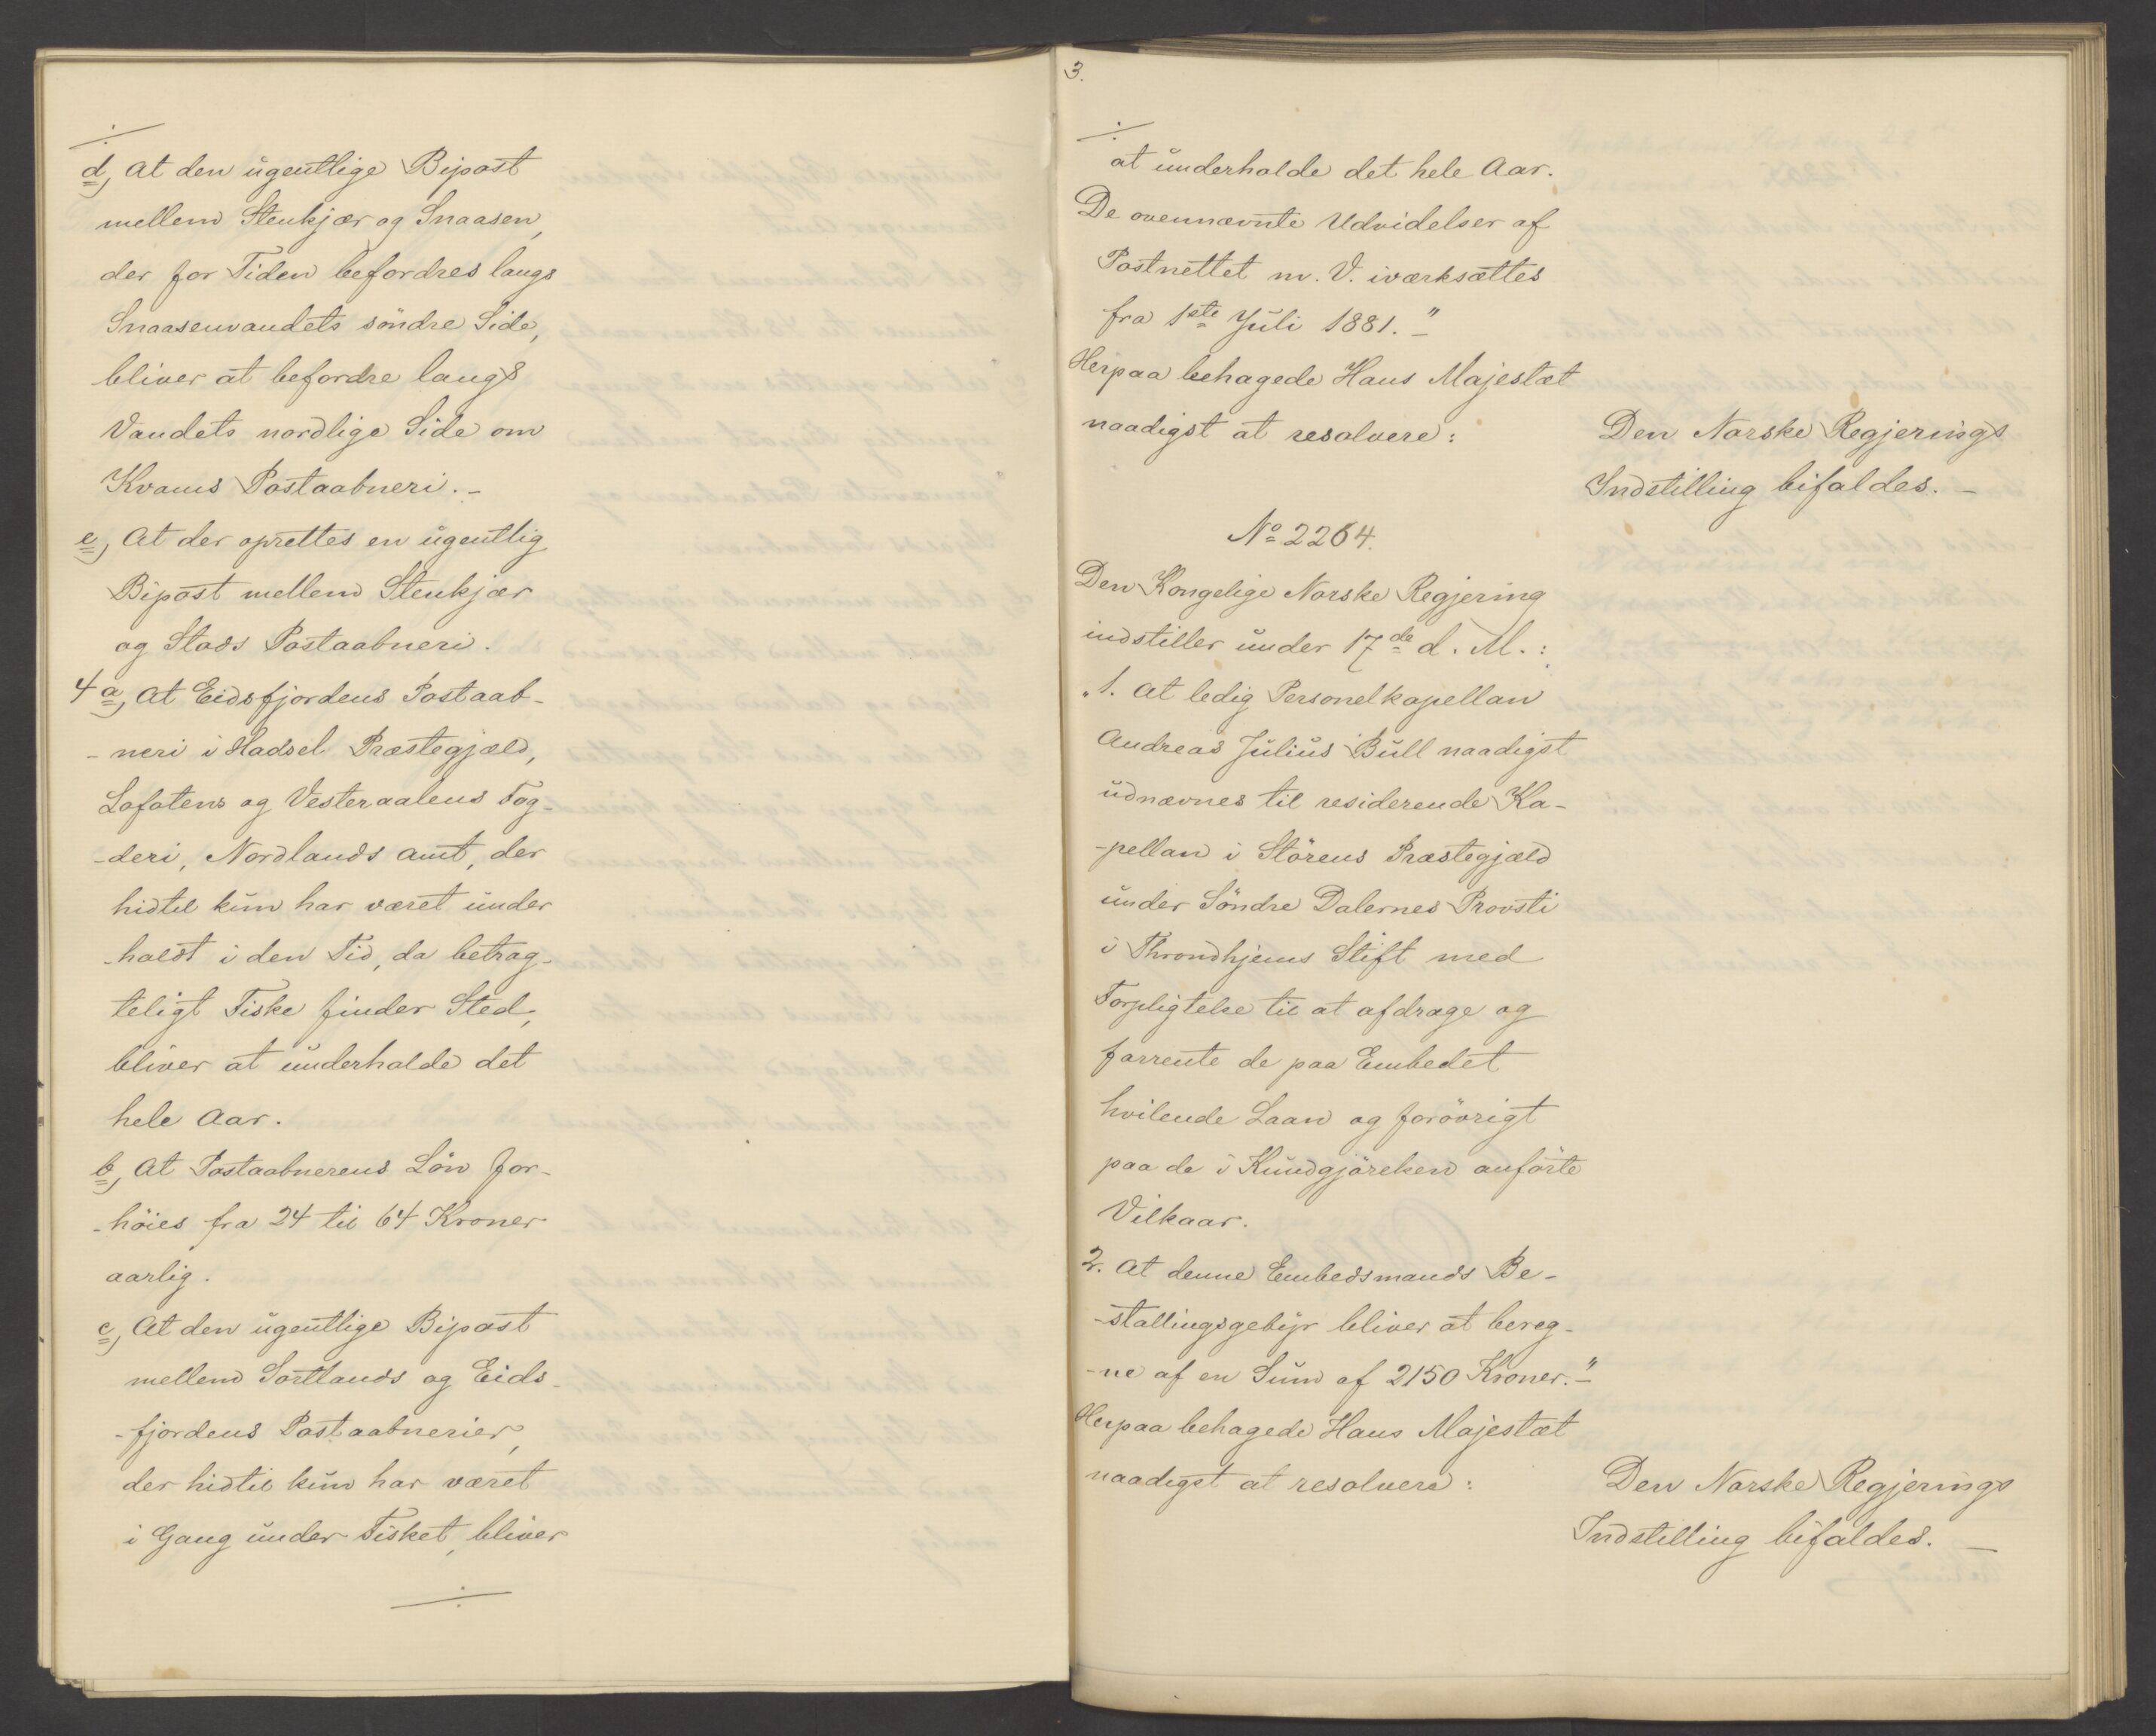 ./.
d, At den ugentlige Bipost
mellem Stenkjær og Snaasen,
der for Tiden befordres langs
Snaasenvandets söndre Side,
bliver at befordre langs
Vandets nordlige Side om
Kvams Postaabneri. -
e, At der oprettes en ugentlig
Bipost mellem Stenkjær
og Stods Postaabneri.
4 a, At Eidsfjordens Postaab-
- neri i Hadsel Præstegjæld,
Lofotens og Vesteraalens Fog-
- deri, Nordlands Amt, der
hidtil kun har været under
- holdt i den Tid, da betrag-
teligt Fiske finder Sted,
bliver at underholde det
hele Aar.
b, At Postaabnerens Lön for-
- höies fra 24 til 64 Kroner
aarlig.
c, At den ugentlige Bipost
mellem Sortlands og Eids-
- fjordens Postaabnerier,
der hidtil kun har været
i Gang under Fisket, bliver
./.
3.
./.
at underholde det hele Aar.
De ovennævnte Udvidelser af
Postnettet m. V. iværksættes
fra 1ste Juli 1881. "-
Herpaa behagede Hans Majestæt
naadigst at resolvere:
Den Norske Regjerings
Indstilling bifaldes. -
No 2264.
Den Kongelige Norske Regjering
indstiller under 17de d. M.:
"1. At ledig Personelkapellan
Andreas Julius Bull naadigst
udnævnes til residerende Ka-
- pellan i Störens Præstegjæld
under Söndre Dalernes Provsti
i Throndhjems Stift med
Forpligtelse til at afdrage og
forrente de paa Embedet
hvilende Laan og forövrigt
paa de i Kundgjörelsen anförte
Vilkaar.
2. At denne Embedsmands Be-
- stallingsgebyr bliver at bereg-
- ne af en Sum af 2150 Kroner. "-
Herpaa behagede Hans Majestæt
naadigst at resolvere:
Den Norske Regjerings
Indstilling bifaldes. -